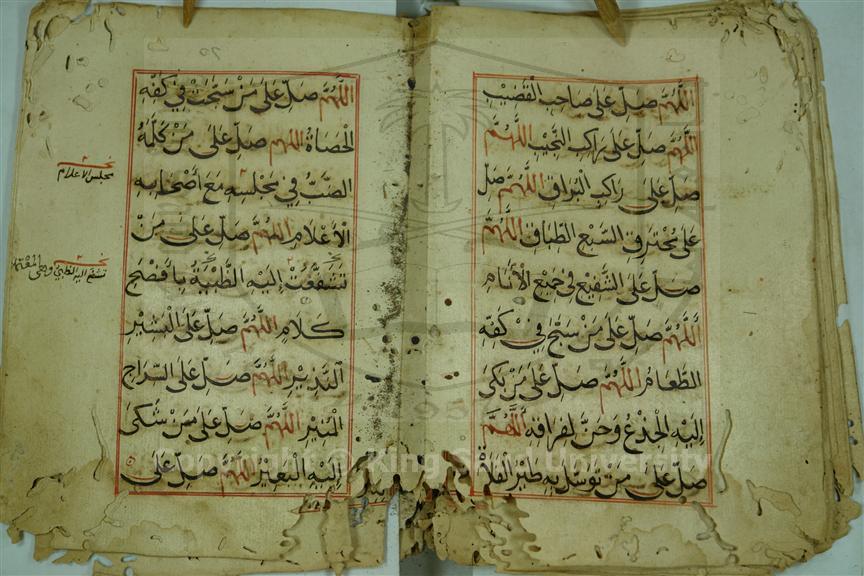 اللَّهُمَّ صَلِّ عَلَى صَاحِبِ الْقَضِيبِ
اللَّهُمَّ صَلِّ عَلَى رَاكِبِ النَّجِيبِ اللَّهُمَّ
صَلِّ عَلَى رَاكِبِ الْبُرَاقِ اللَّهُمَّ صَلِّ
عَلَى مُخْتَرِقِ السَّبْعِ الطِّبَاقِ اللَّهُمَّ
صَلِّ عَلَى الشَّفِيعِ فِي جَمِيعِ الْأَنَامِ
اللَّهُمَّ صَلِّ عَلَى مَنْ سَبَّحَ فِي كَفِّهِ
الطَّعَامُ اللَّهُمَّ صَلِّ عَلَى مَنْ بَكَى
إِلَيْهِ الْجِذْعُ وَحَنَّ لِفِرَاقِهِ اللَّهُمَّ
صَلِّ عَلَى مَنْ تَوَسَّلَ بِهِ طَيْرُ الْفَلَاةِ
اللَّهُمَّ صَلِّ عَلَى مَنْ سَبَّحَتْ فِي كَفِّهِ
الْحَصَاةُ اللَّهُمَّ صَلِّ عَلَى مَنْ كَلَّمَهُ
الضَّبُّ فِي مَجْلِسِهِ مَعَ أَصْحَابِهِ
الْأَعْلَامِ اللَّهُمَّ صَلِّ عَلَى مَنْ
تَشَفَّعَتْ إِلَيْهِ الظَّبْيَةُ بِأَفْصَحِ
كَلَامٍ اللَّهُمَّ صَلِّ عَلَى الْبَشِيرِ
النَّذِيرِ اللَّهُمَّ صَلِّ عَلَى السِّرَاجِ
الْمُنِيرِ اللَّهُمَّ صَلِّ عَلَى مَنْ شَكَى
إِلَيْهِ الْبَعِيرُ اللَّهُمَّ صَلِّ عَلَى
مجلس الاعلام
تشفع اليه الظبي وهي المعتمدة
Copyright © King Saud University
1957